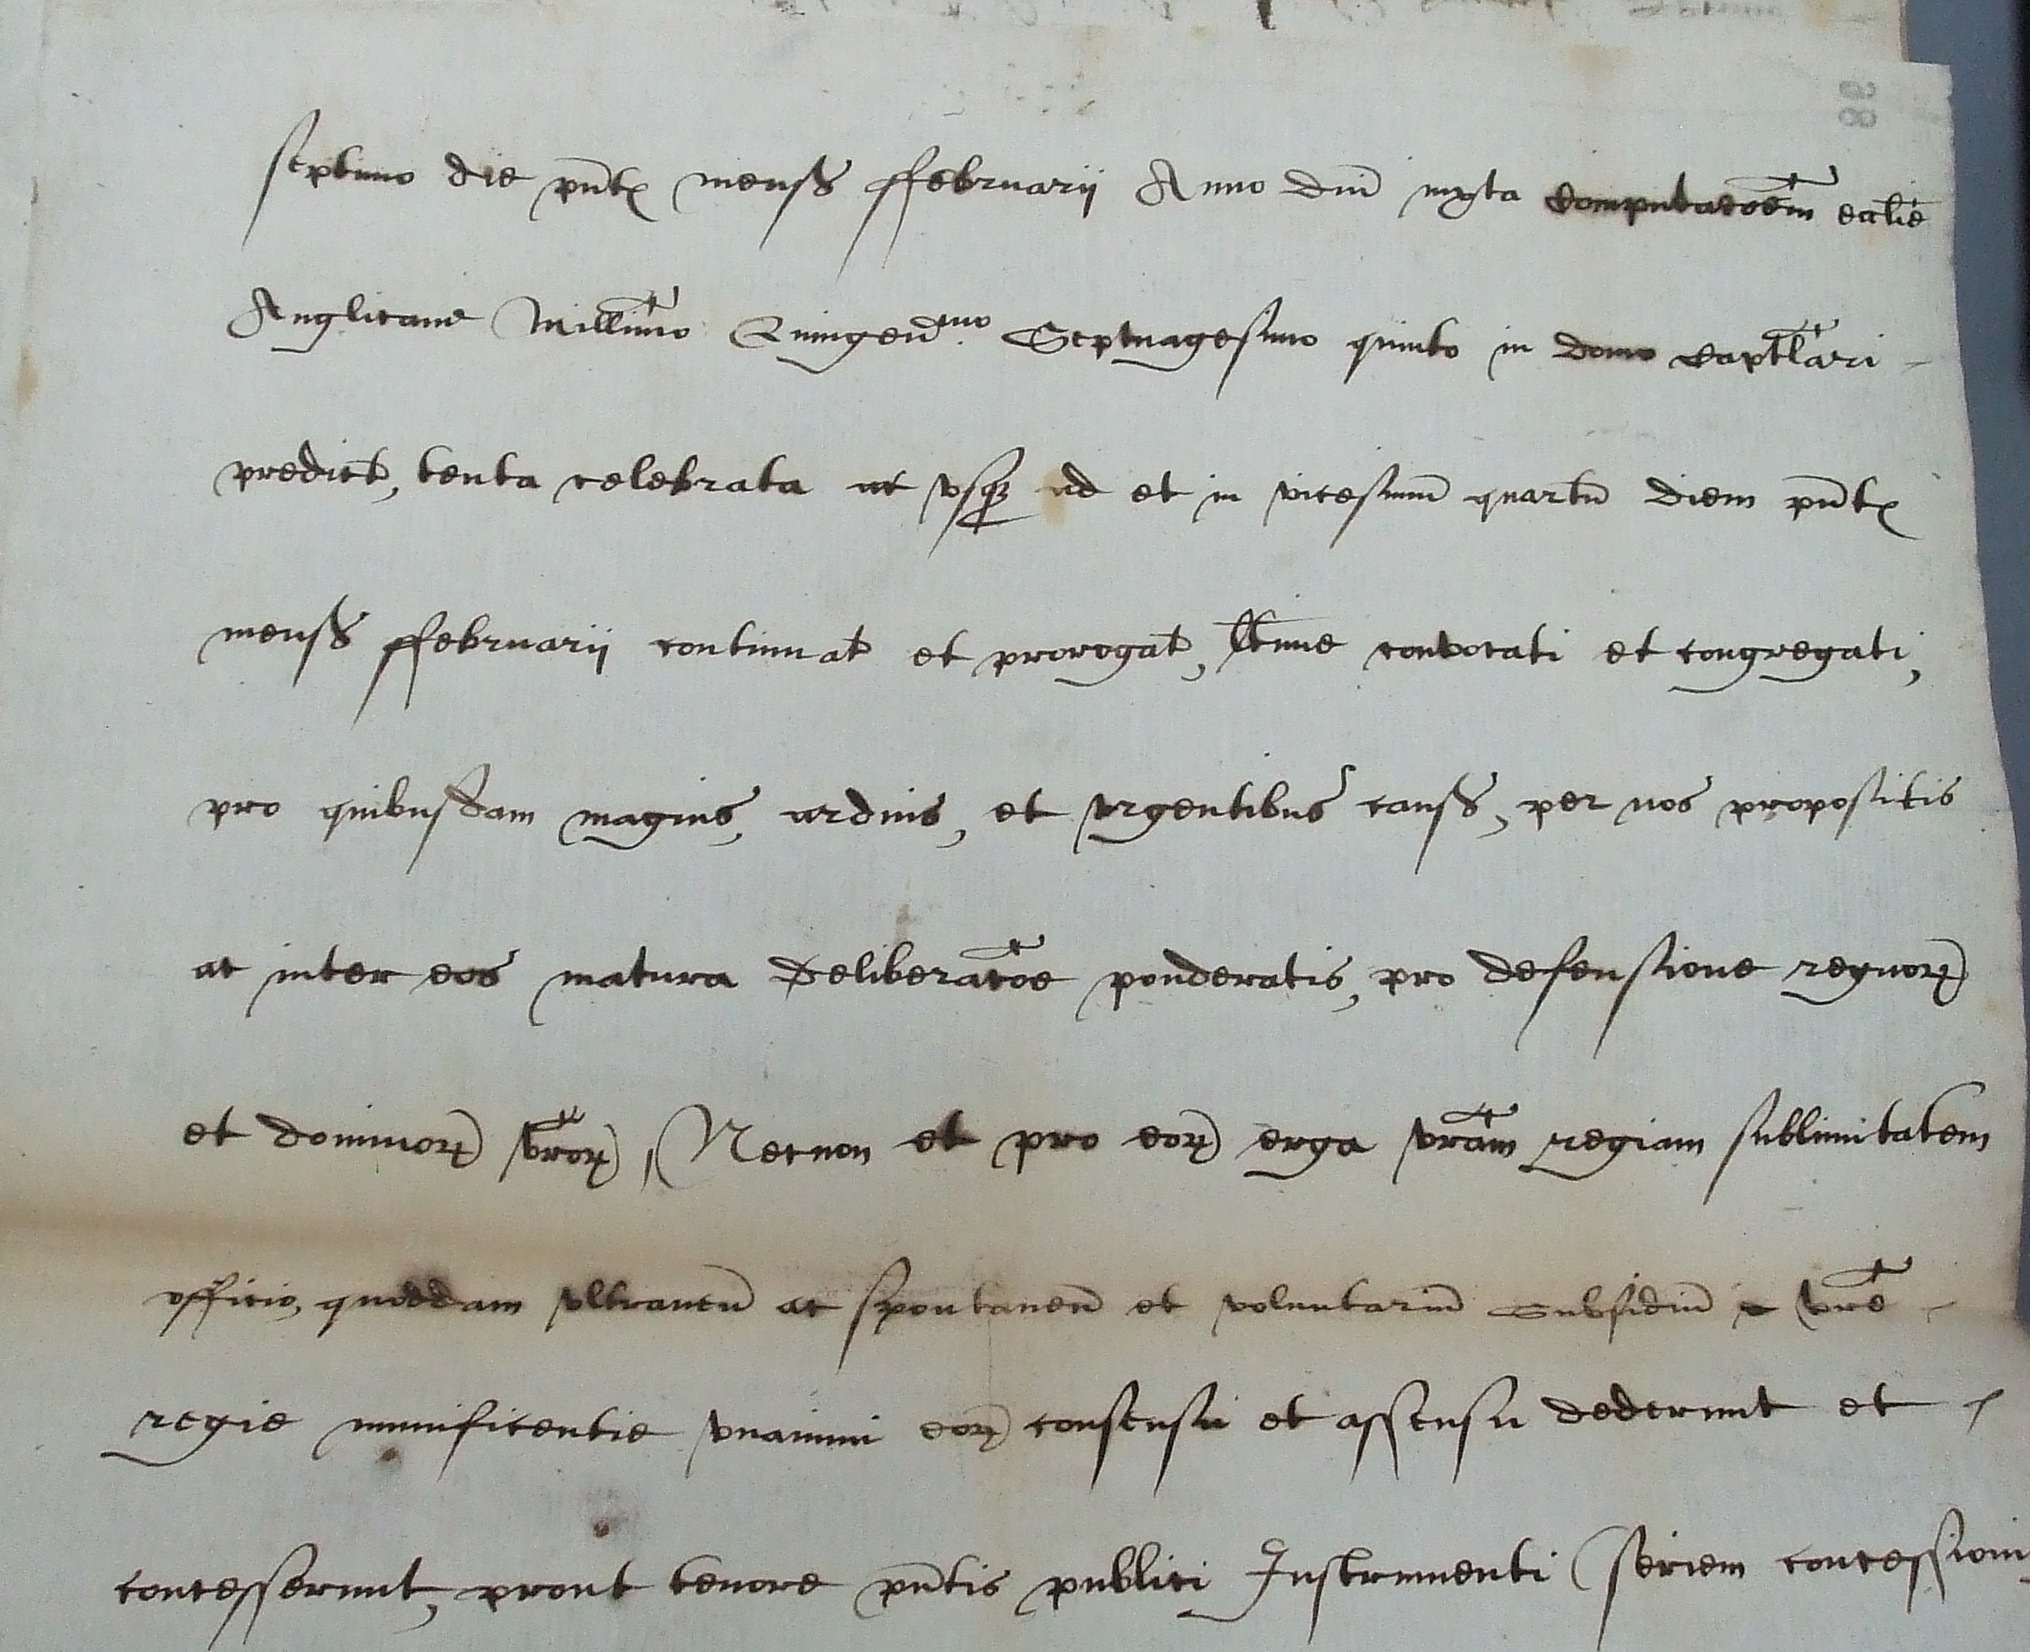 septimo die pñt mens ffebruarii Anno dñi iuxta computacoẽm eccliẽ
Anglicane Millimo Quingenᵐᵒ Septuagesimo quinto in domo captlari
predict, tenta celebrata ac vsqȝ ad et in vicesimũ quartũ diem pñt
mens ffebruarii continuat et prorogat, ltime convocati et congregati,
pro quibusdam magnis, arduis, et vrgentibus causs, per nos propositis
ac inter eos matura deliberatõe ponderatis, pro defensione regnorꝝ
et dominiorꝝ vrorꝝ, Necnon et pro eorꝝ erga vrãm regiam sublimitatem
officio, quoddam vltraneũ ac spontaneũ et voluntariũ Subsidiũ vrẽ
regie munificentie vnanimi eorꝝ consensu et assensu dederunt et
concesserunt, prout tenore pñtis publici Instrumenti seriem concessioni